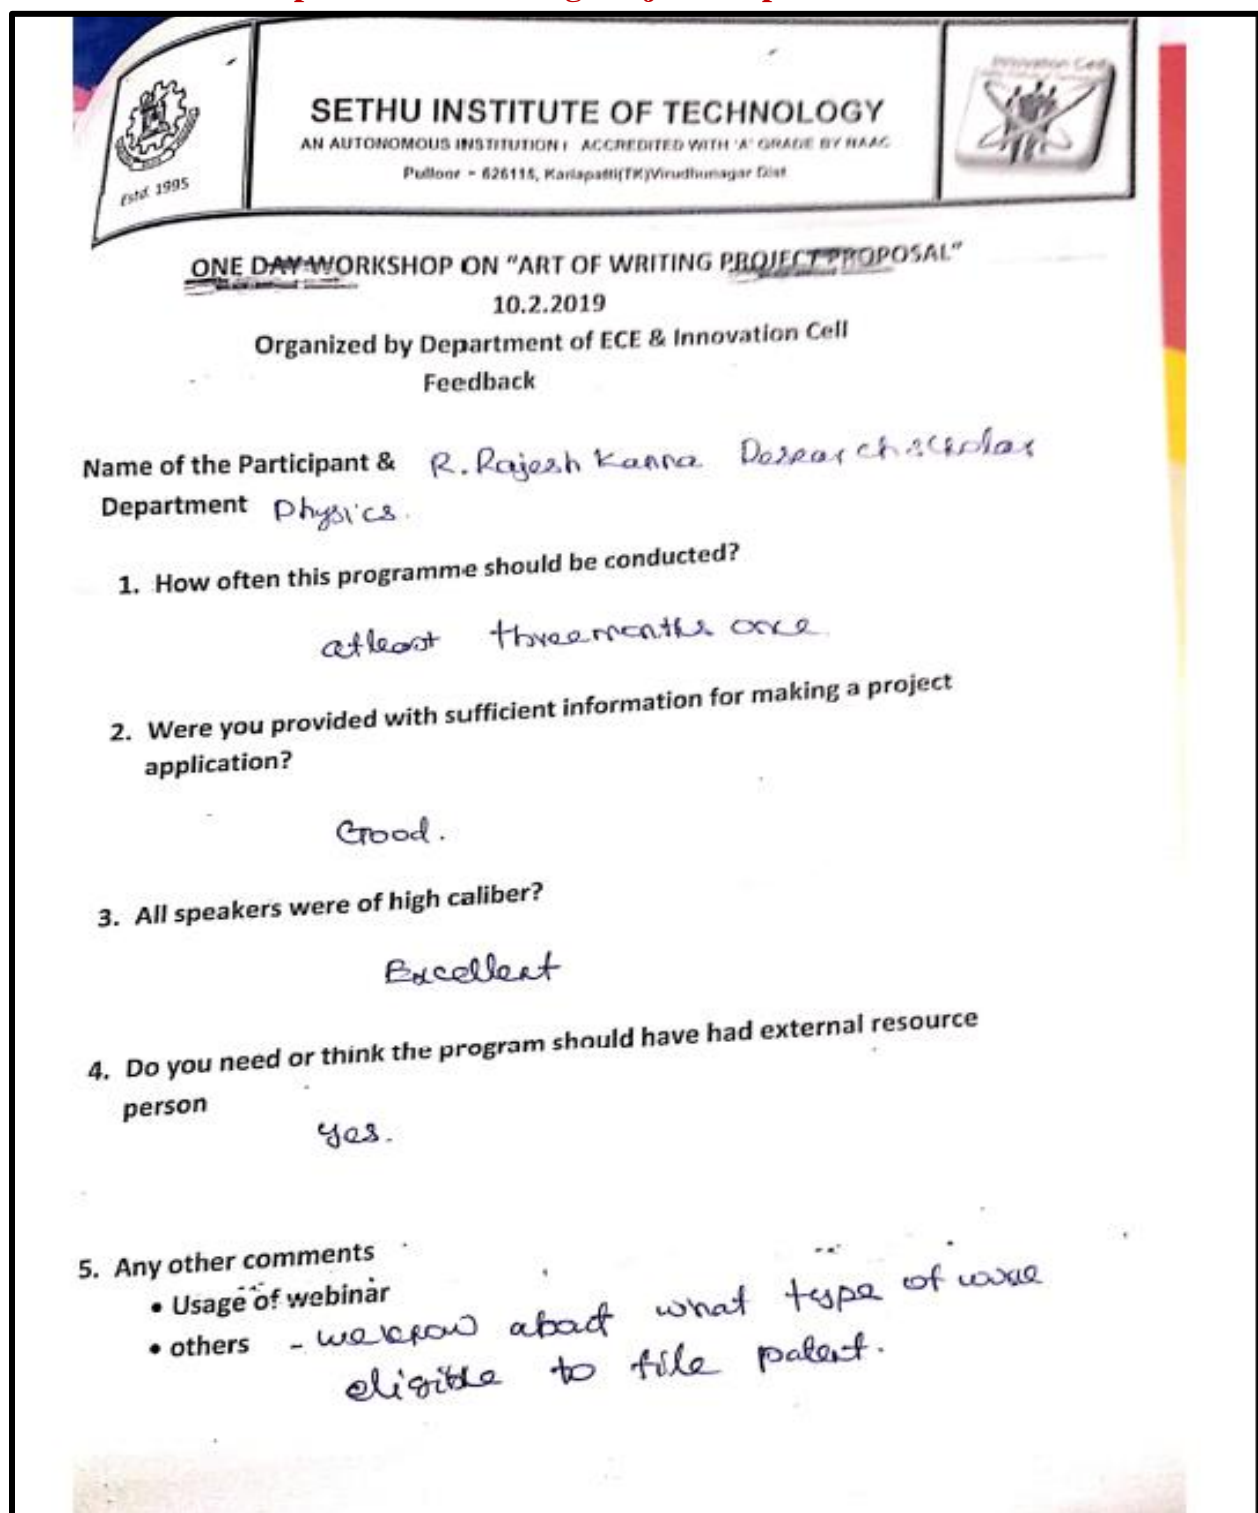 Estd. 1995
Innovation Cell
SETHU INSTITUTE OF TECHNOLOGY
AN AUTONOMOUS INSTITUTION | ACCREDITED WITH 'A' GRADE BY NAAC
Pulloor - 626115, Kariapatti(TK)Virudhunagar Dist
ONE DAY WORKSHOP ON "ART OF WRITING PROJECT PROPOSAL"
10.2.2019
Organized by Department of ECE & Innovation Cell
Feedback
Name of the Participant & R. Rajesh Kanna Research scholar
Department Physics.
1. How often this programme should be conducted?
atleast three months once
2. Were you provided with sufficient information for making a project
application?
Good.
3. All speakers were of high caliber?
Excellent
4. Do you need or think the program should have had external resource
person
Yes.
5. Any other comments
• Usage of webinar
• others - we know about what type of
eligible to file patent.